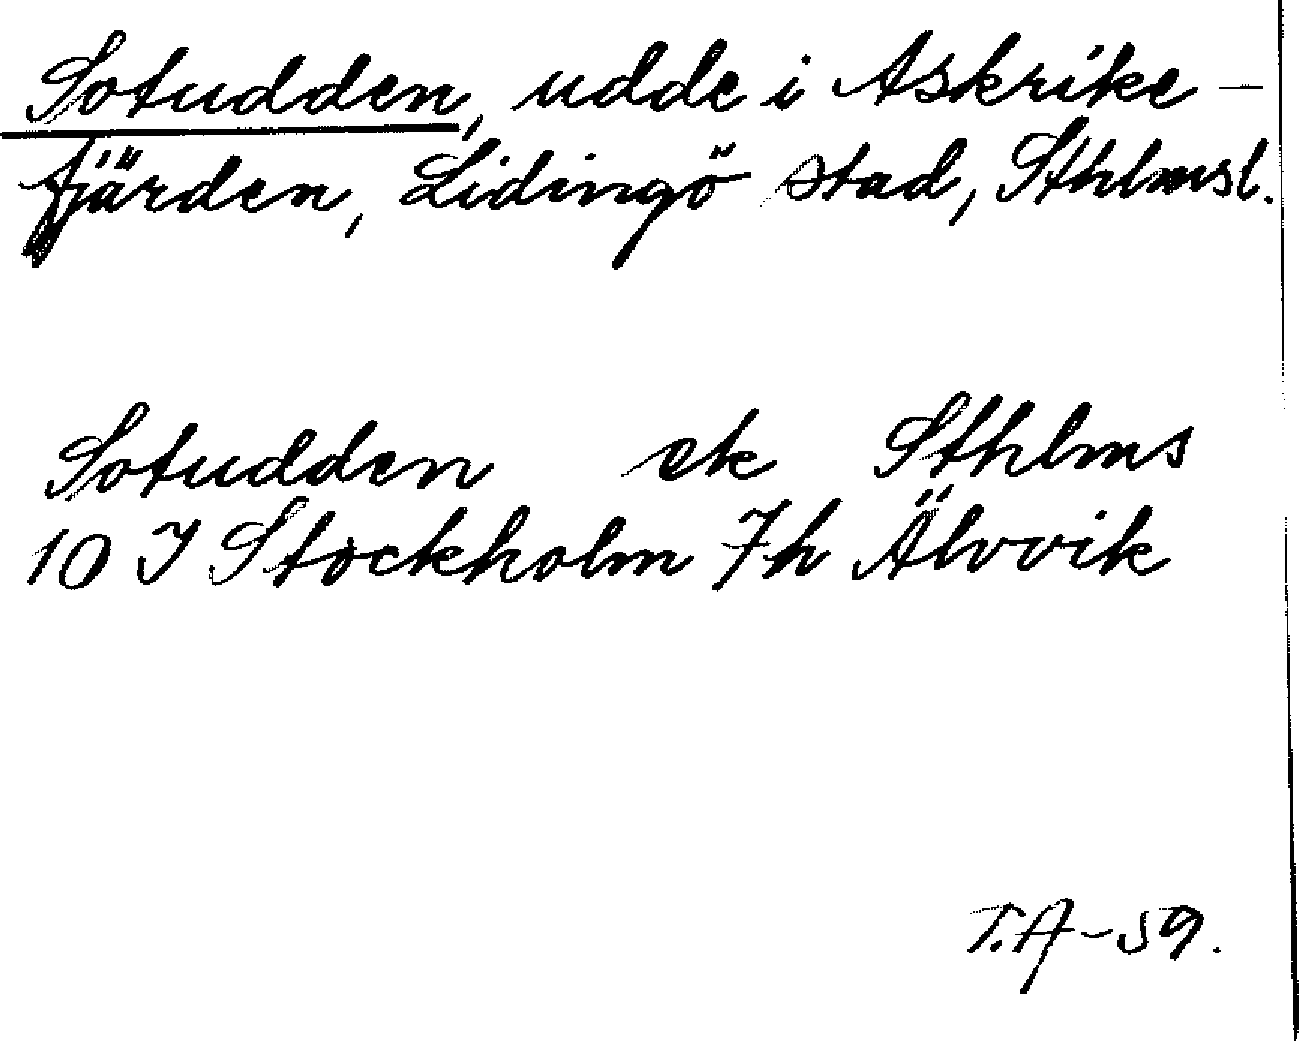 Sotudden, udde i Askrike-
fjärden, Lidingö stad, Sthlmsl.
Sotudden ek Sthlms
10 I Stockholm 7h Älvvik
T.A-59.